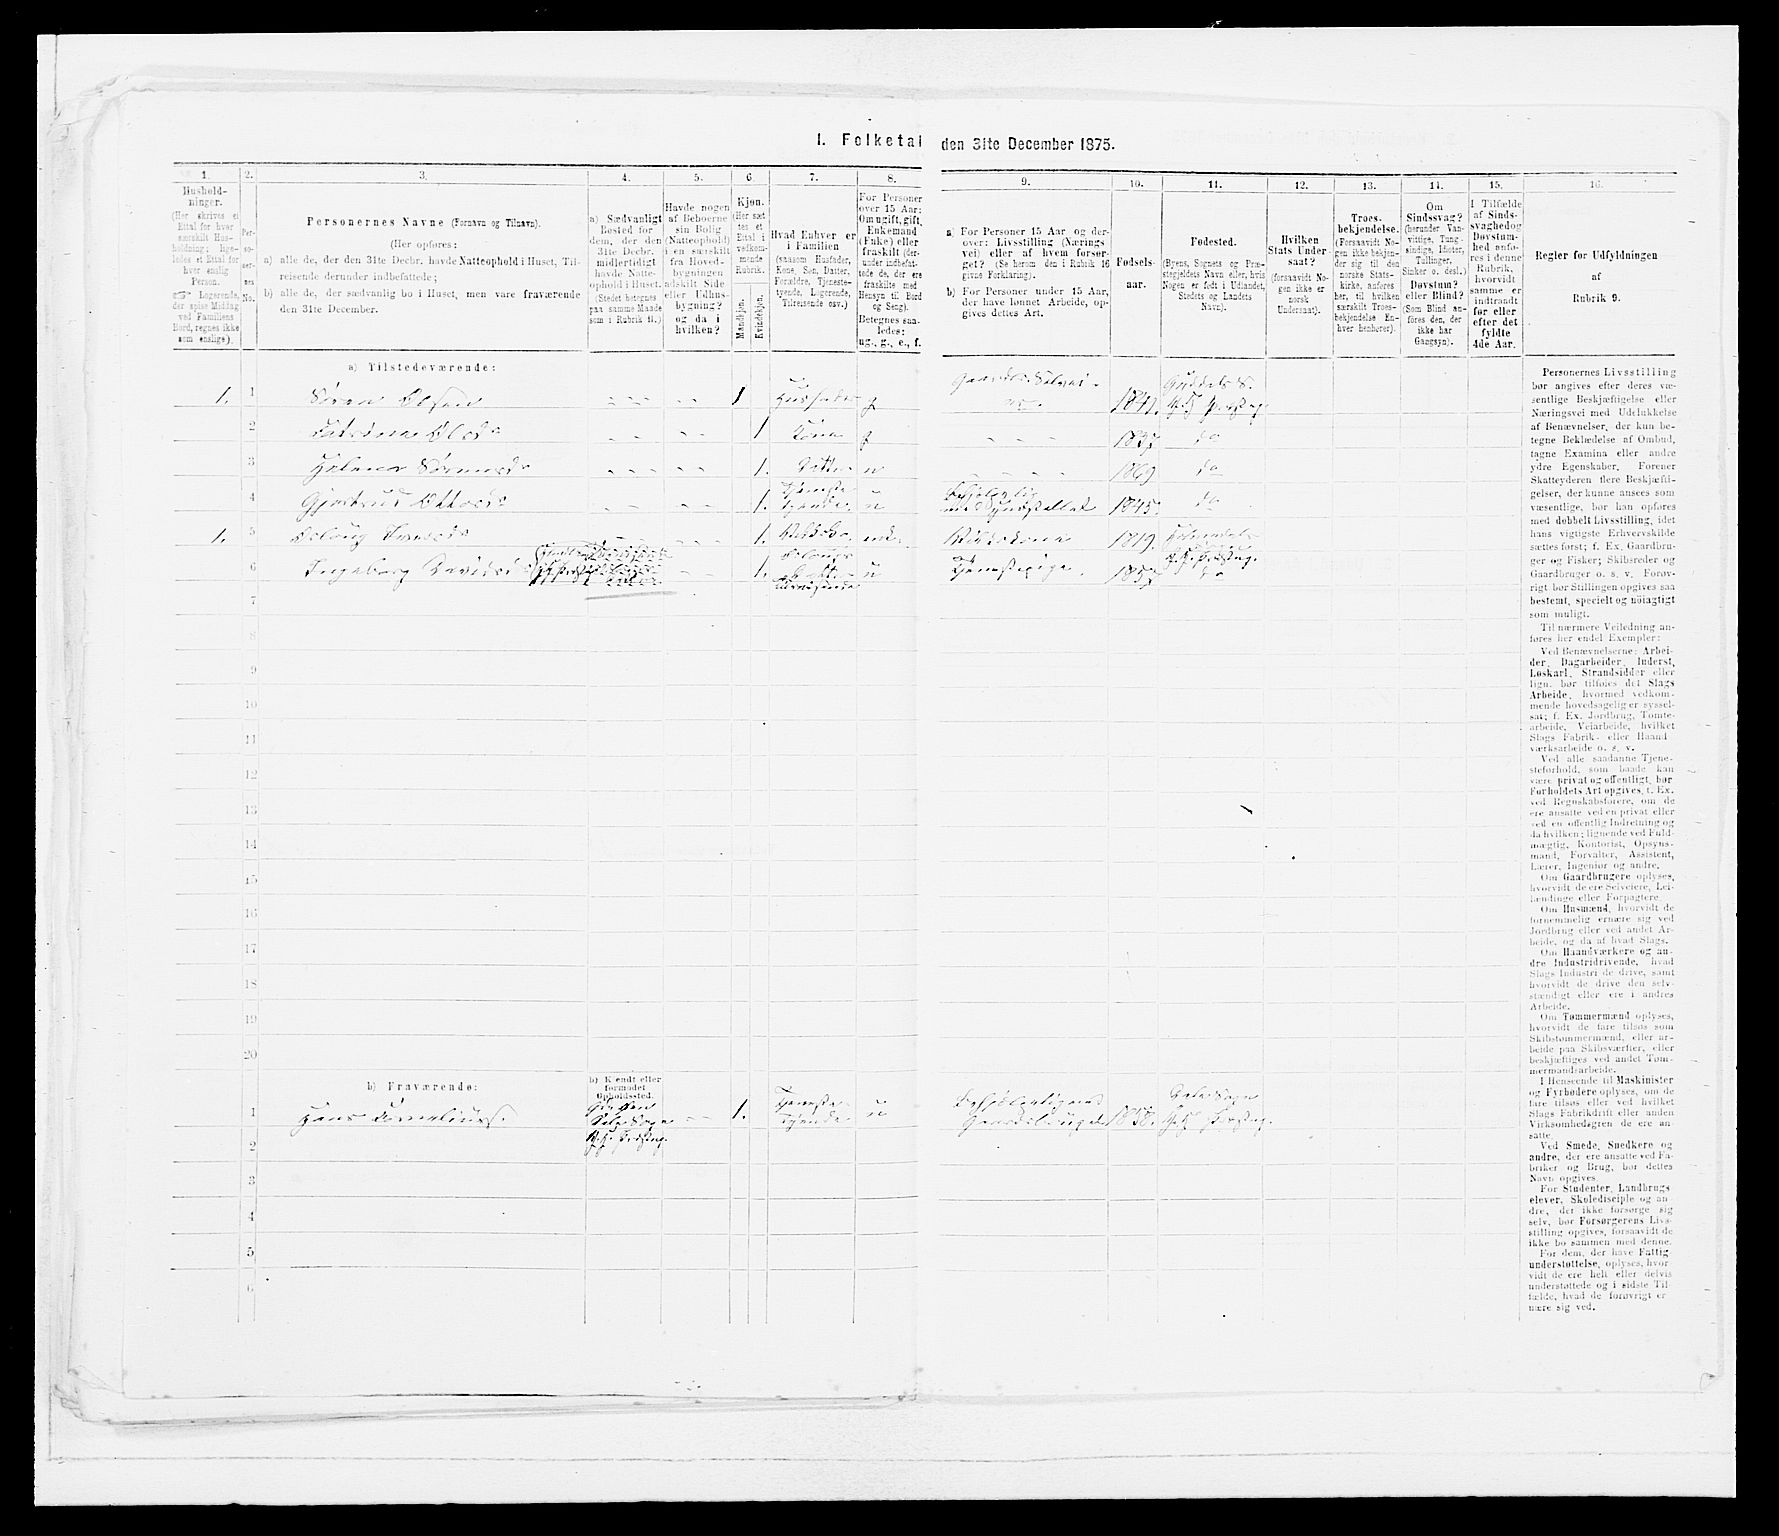 I. Folketal den 31te December 1875.
1.
2.
3.
4.
5.
6.
7.
8.
9.
10.
11.
12.
13.
14.
15.
16.
Hushold-
ninger.
(Her skrives et
Ettal for hver
særskilt Hus-
holdning; lige-
ledes et Ettal for
hver enslig
Person.
Logerende,
der spise Middag
ved Familiens
Bord, regnes ikke
som enslige).
Per-
so-
ner-
nes
No.
Personernes Navne (Fornavn og Tilnavn).
(Her opføres:
a) alle de, der den 31te Decbr. havde Natteophold i Huset, Til-
reisende derunder indbefattede;
b) alle de, der sædvanlig bo i Huset, men vare fraværende
den 31te December.
a) Sædvanligt
Bosted for
dem, der den
31te Decbr.
midlertidigt
havde Natte-
ophold i Huset.
(Stedet betegnes
paa samme Maade
som i Rubrik 11.)
Havde nogen
af Beboerne
sin Bolig
(Natteophold)
i en særskilt
fra Hoved-
bygningen
adskilt Side-
eller Udhus-
bygning?
og da i
hvilken?
Kjøn.
(Her sæt
tes et
Ettal i
vedkom-
mende
Rubrik.
Mandkjøn.
Kvindekjøn.
Hvad Enhver er
i Familien
(saasom Husfader,
Kone, Søn, Datter,
Forældre, Tjeneste-
tyende, Logerende,
Tilreisende osv.)
For Personer
over 15 Aar:
Om ugift, gift,
Enkemand
(Enke) eller
fraskilt (der-
under indbefat-
tede de, der ere
fraskilte med
Hensyn til Bord
og Seng).
Betegnes saa-
ledes:
ug., g., e., f.
a) For Personer 15 Aar og der-
over: Livsstilling (Nærings
vei) eller af hvem forsør-
get? (Se herom den i Rubrik 16
givne Forklaring).
b) For Personer under 15 Aar,
der have lønnet Arbeide, op-
gives dettes Art.
Fødsels-
aar.
Fødested.
(Byens, Sognets og Præ-
stegjeldets Navn eller, hvis
Nogen er født i Udlandet,
Stedets og Landets
Navn).
Hvilken
Stats Under-
saat?
(forsaavidt No-
gen ikke er
norsk
Undersaat).
Troes-
bekjendelse.
(Forsaavidt No-
gen ikke bekjen-
der sig til den
norske Stats-
kirke, anføres
her, til hvilken
særskilt Troes-
bekjendelse En-
hver henhører).
Om
Sindssvag?
(herunder Van-
vittige, Tung-
sindige, Idioter,
Tullinger,
Sinker o. desl.)
Døvstum?
eller Blind?
(Som Blind an-
føres den, der
ikke har
Gangsyn).
I Tilfælde
af Sinds-
svaghed og
Døvstum-
hed anfø-
res i denne
Rubrik,
hvorvidt
samme er
indtraadt
før eller
efter det
fyldte
4de Aar.
Regler for Udfyldningen
af
Rubrik 9.
a) Tilstedeværende:
1. 1 Søren Olsen 1 Husfader g Gaardb. Selvei- 1841.
2 1 Kone g 1837 do
3 Helene Sørensd. 1. Datter 1869 do
4 Gjertrud 1. Tjeneste-
tyende u 1845. do
1. 5 1. 1819.
6 Ingeborg 1. Datter u Tjenestepige. do
7
8
9
10
11
12
13
14
15
16
17
18
19
20
b) Fraværende:
b) Kjendt eller
formodet
Opholdssted.
1 Hans Korneliuss. 1. Tjeneste-
tyende u 1858.
2
3
4
5
6
Personernes Livsstilling
bør angives efter deres væ-
sentlige Beskjæftigelse eller
Næringsvei med Udelukkelse
af Benævnelser, der kun be-
tegne Beklædelse af Ombud,
tagne Examina eller andre
ydre Egenskaber. Forener
Skatteyderen flere Beskjæfti-
gelser, der kunne ansees som
væsentlige, bør han opføres
med dobbelt Livsstilling, idet
hans vigtigste Erhvervskilde
sættes først; f. Ex. Gaardbru-
ger og Fisker; Skibsreder og
Gaardbruger o. s. v. Forøv-
rigt bør Stillingen opgives saa
bestemt, specielt og nøiagtigt
som muligt.
Til nærmere Veiledning an-
føres her endel Exempler:
Ved Benævnelserne: Arbei-
der, Dagarbeider, Inderst,
Løskarl, Strandsidder eller
lign. bør tilføies det Slags
Arbeide, hvormed vedkom-
mende hovedsagelig er syssel-
sat; f. Ex. Jordbrug, Tomte-
arbeide, Veiarbeide, hvilket
Slags Fabrik- eller Haand-
værksarbeide o. s. v.
Ved alle saadanne Tjene-
steforhold, som baade kan
være privat og offentligt, bør
Forholdets Art opgives, f. Ex.
ved Regnskabsførere, om de
ere ansatte ved en privat eller
ved en offentlig Indretning og
da hvilken; lignende ved Fuld-
mægtig, Kontorist, Opsyns-
mand, Forvalter, Assistent,
Lærer, Ingeniør og andre.
Om Gaardbrugere oplyses,
hvorvidt de ere Selveiere, Lei-
lændinge eller Forpagtere.
Om Husmænd, hvorvidt de
fornemmelig ernære sig ved
Jordbrug eller ved andet Ar-
beide, og da af hvad Slags.
Om Haandværkere og an-
dre Industridrivende, hvad
Slags Industri de drive, samt
hvorvidt de drive den selv-
stændigt eller ere i andres
Arbeide.
Om Tømmermænd oplyses,
hvorvidt de fare tilsøs som
Skibstømmermænd, eller ar-
beide paa Skibsværfter, eller
beskjæftiges ved andet Tøm-
mermandsarbeide.
I Henseende til Maskinister
og Fyrbødere oplyses, om de
fare tilsøs eller ved hvilket
Slags Fabrikdrift eller anden
Virksomhedsgren de ere an-
satte.
Ved Smede, Snedkere og
andre, der ere ansatte ved Fa-
briker og Brug, bør dettes
Navn opgives.
For Studenter, Landbrugs-
elever, Skoledisciple og an-
dre, der ikke forsørge sig
selv, bør Forsørgerens Livs-
stilling opgives, forsaavidt de
ikke bo sammen med denne.
For dem, der have Fattig-
understøttelse, oplyses, hvor-
vidt de ere helt eller delvis
understøttede og i sidste Til-
fælde, hvad de forøvrigt er-
nære sig ved.